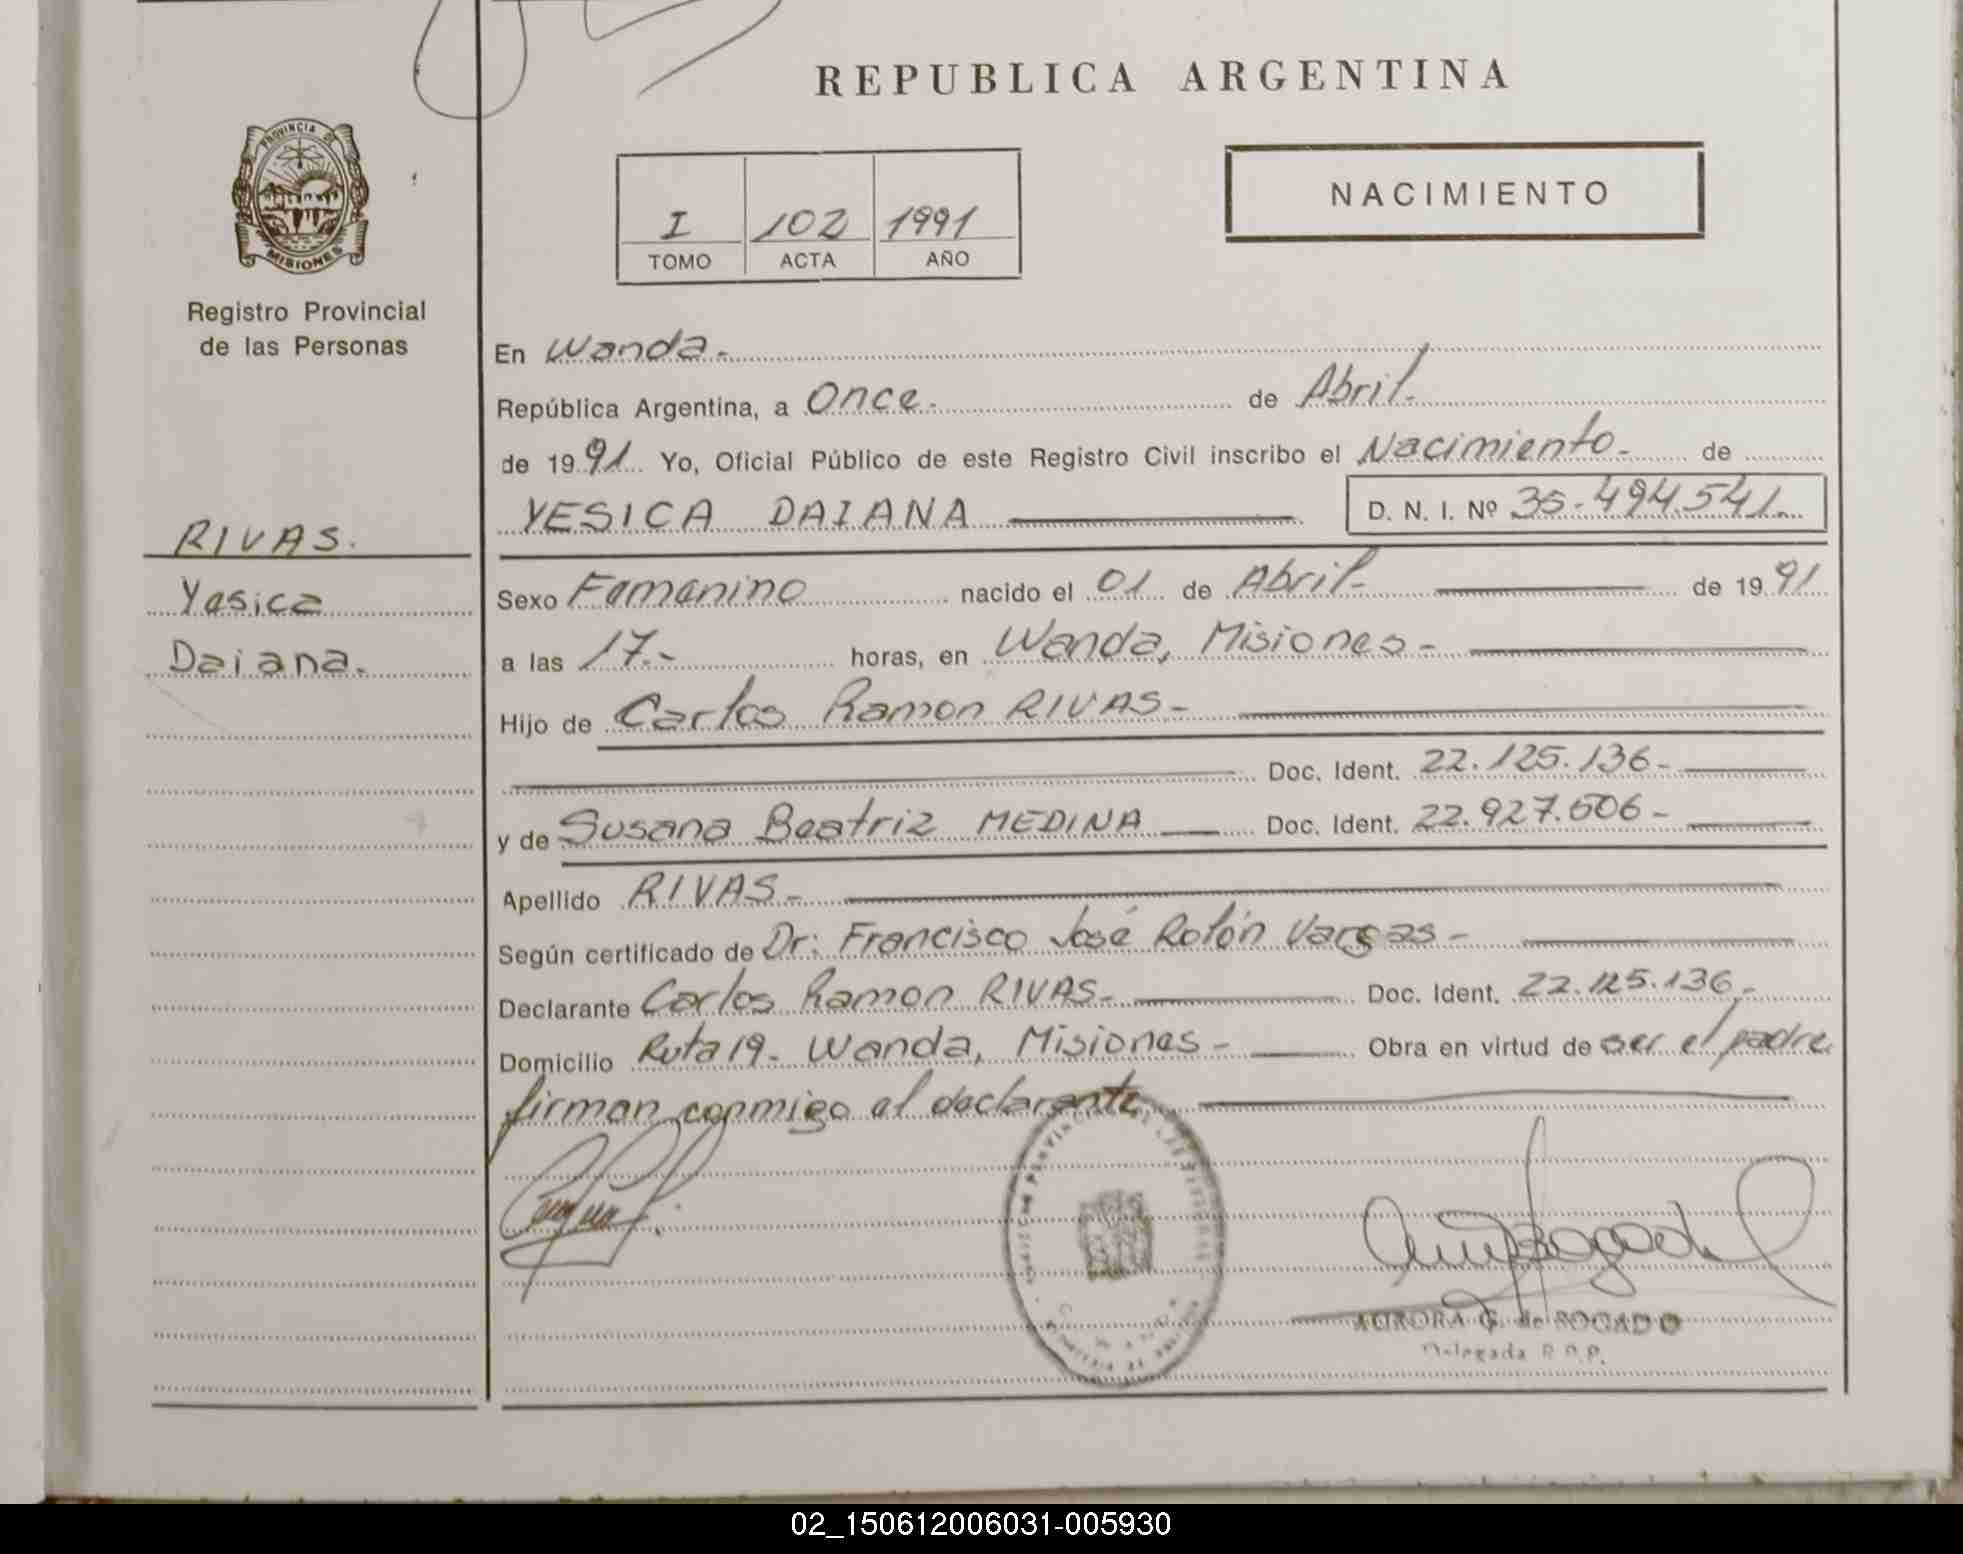 REPUBLICA ARGENTINA
PROVINCIA DE
MISIONES
Registro Provincial
de las Personas
NACIMIENTO
I 102 1991
TOMO ACTA AÑO
En Wanda.
República Argentina, a Once. de Abril.
de 1991 Yo, Oficial Público de este Registro Civil inscribo el Nacimiento. de
YESICA DAIANA D. N. I. Nº 35.494.541.
RIVAS.
Yesica
Daiana.
Sexo Femenino nacido el 01 de Abril. de 1991
a las 17.- horas, en Wanda, Misiones -
Hijo de Carlos Ramon RIVAS -
Doc. Ident. 22.125.136 -
y de Susana Beatriz MEDINA Doc. Ident. 22.927.606 -
Apellido RIVAS -
Según certificado de Dr: Francisco José Rolón Vargas -
Declarante Carlos Ramon RIVAS - Doc. Ident. 22.125.136.-
Domicilio Ruta 19. Wanda, Misiones - Obra en virtud de ser el padre
firman conmigo el declarante.
AURORA G. de BOGADO
Delegada R.P.P.
02_150612006031-005930